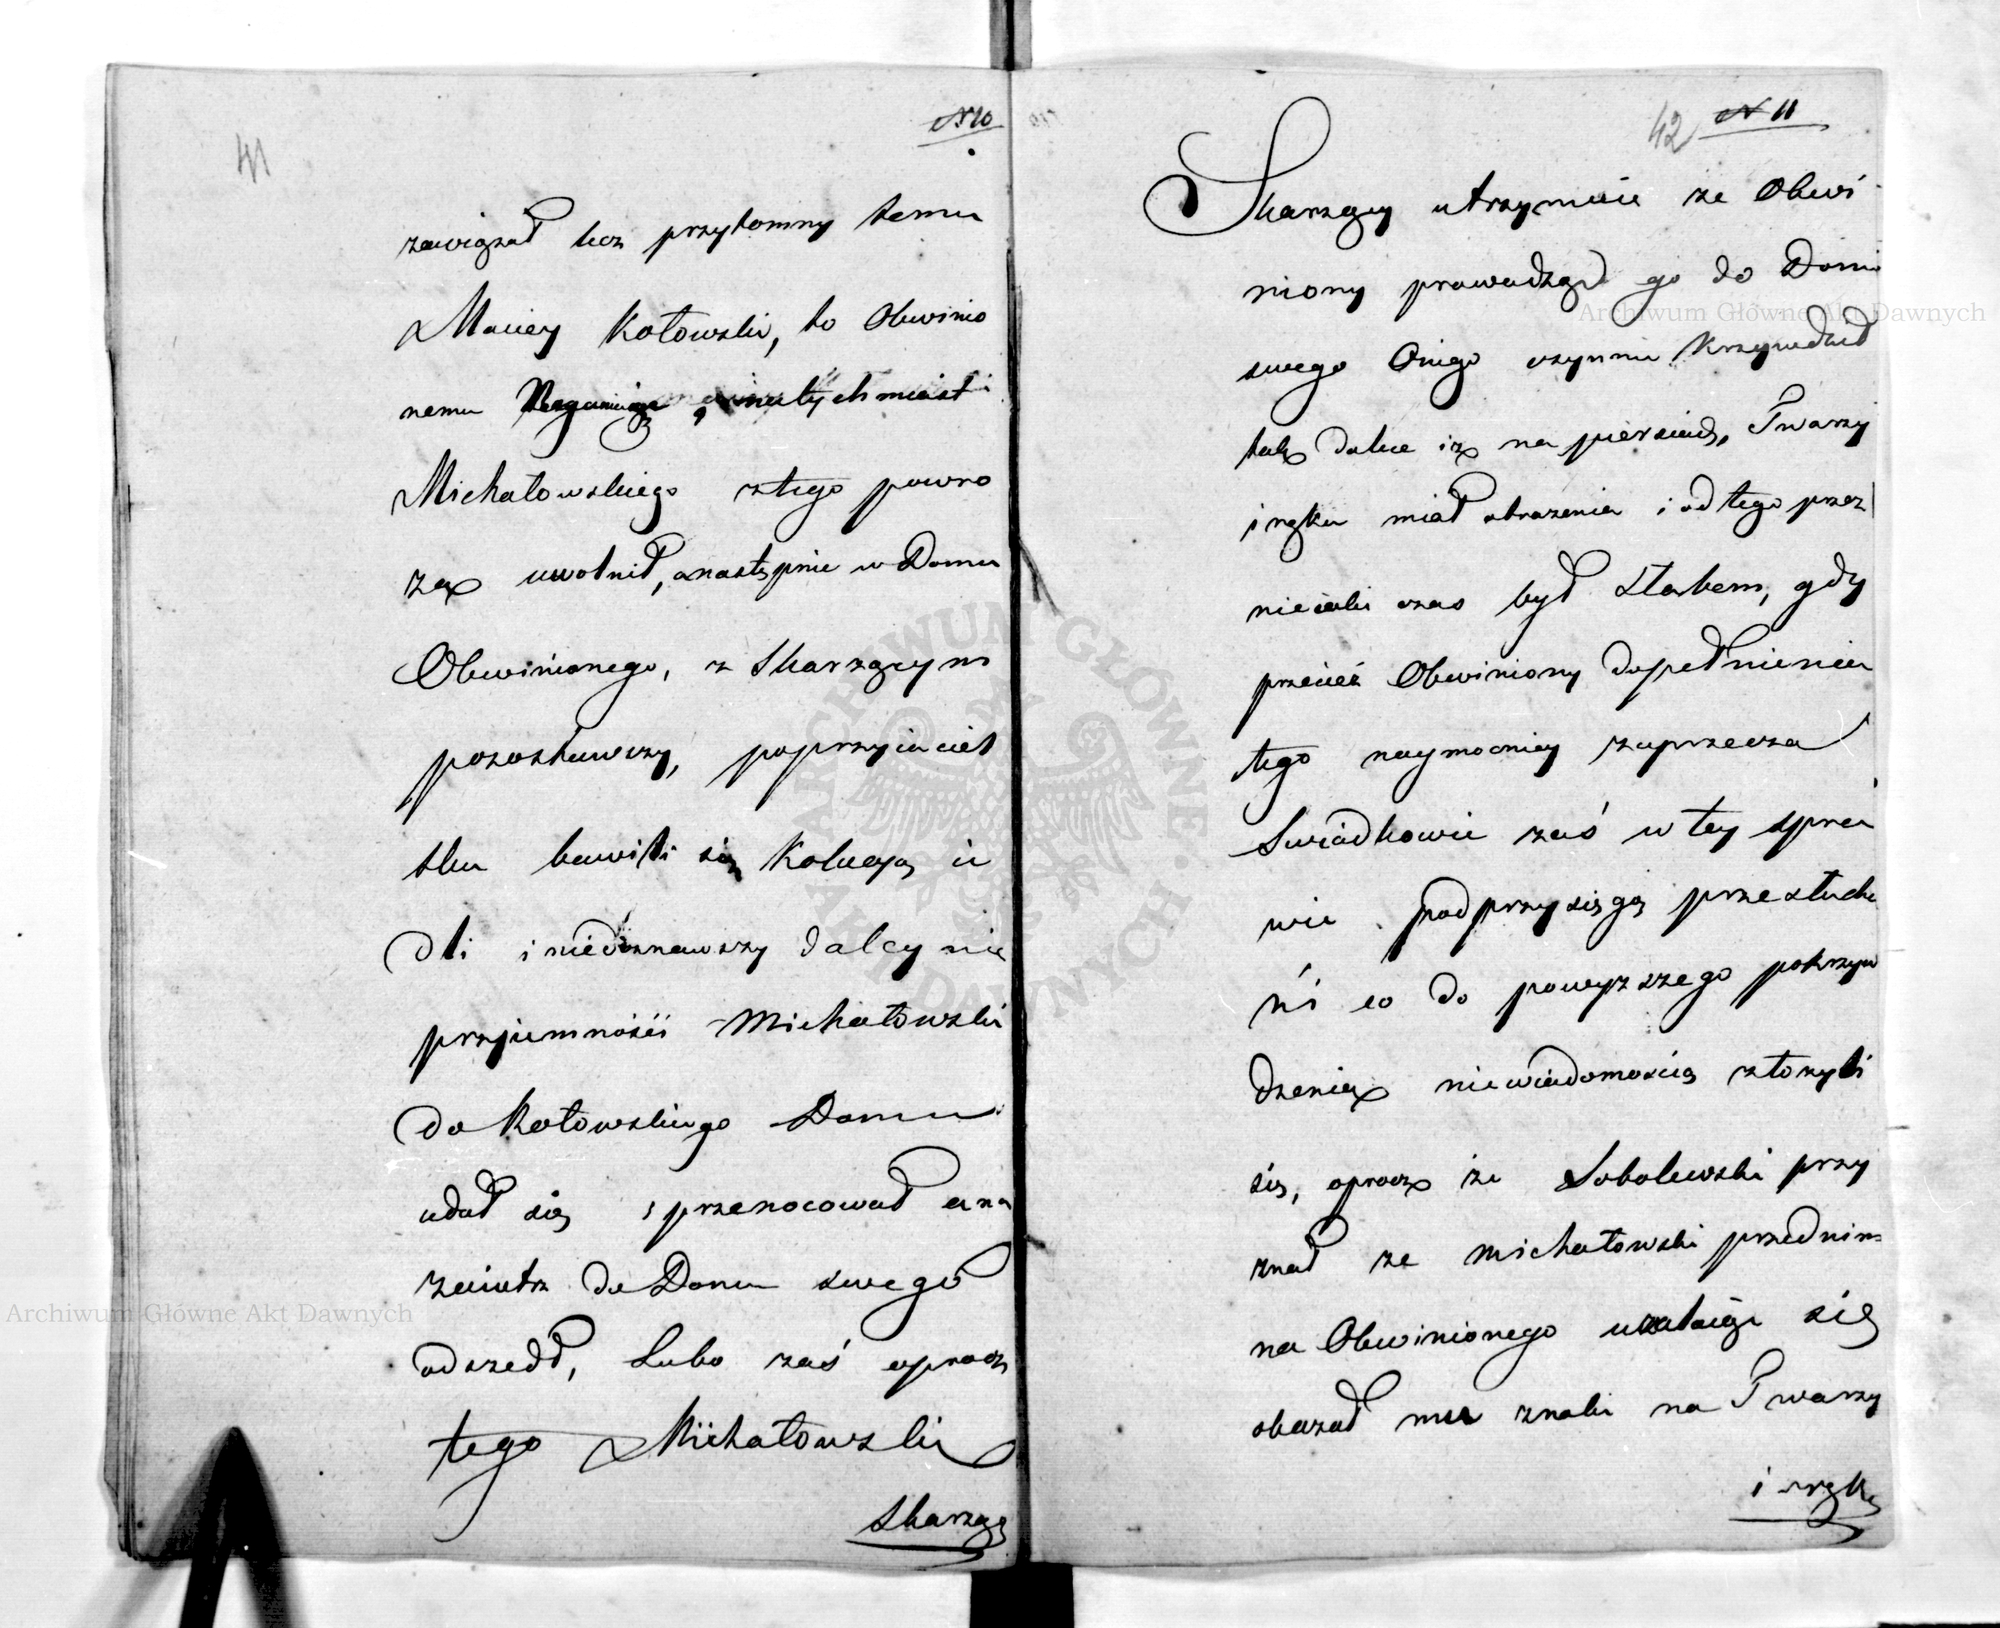 N 10
41
zawiązał lecz przytomny temu
Maciey Kotowski, to Obwinio
nemu natychmiast
Michałowskiego z tego powro
za uwolnił, a następnie w Domu
Obwinionego, z Skarzącym
pozostawszy, po przyiaciel
sku bawili się Kolacyą ie
dli i niedoznawszy daley nie
przyiemności Michałowski
do Kotowskiego Domu
udał się i przenocował a na
zaiutrz do Domu swego
odszedł, Lubo zaś oprocz
tego Michałowski
Skarzący
42 N 11
Skarzący utrzymuie ze Obwi
niony prowadząc go do Domu
swego Onego czynnie Krzywdził
tak dalece iz na piersiach, Twarzy
i ręku miał obrazenia i od tego przez
nieiaki czas był słabem, gdy
przecież Obwiniony dopełnienia
tego naymocniey zaprzecza
Swiadkowie zaś w tey spra
wie pod przysięgą przesłucha
ni co do powyzszego pokrzyw
dzenia niewiadomością złozyli
się, oprocz ze Sobolewski przy
znał ze Michałowski przed nim
na Obwinionego uzalaiąc się
okazał mu znaki na Twarzy
i ręku
Archiwum Główne Akt Dawnych
Archiwum Główne Akt Dawnych
ARCHIWUM GŁÓWNE AKT DAWNYCH